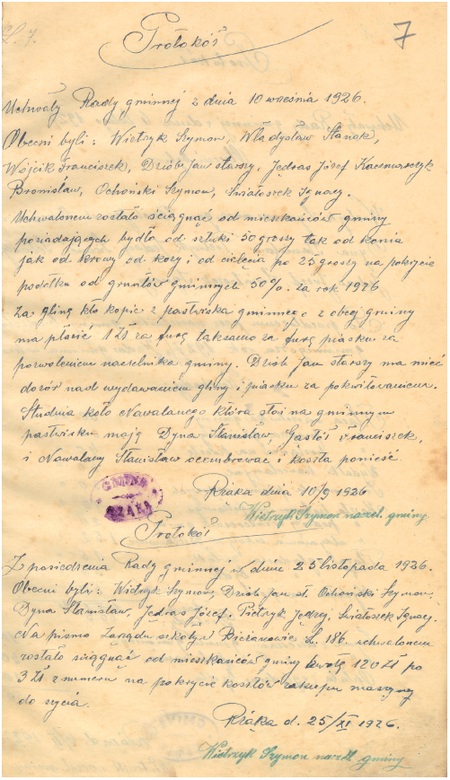 L. 7.
7
Protokół
Uchwały Rady gminnej z dnia 10 września 1926.
Obecni byli: Wietrzyk Szymon, Władysław Stanek,
Wójcik Franciszek, Dziób Jan starszy, Jedras Józef Kaczmarczyk
Bronisław, Ochoński Szymon, Światoszek Ignacy.
Uchwalonem zostało ściągnąć od mieszkańców gminy
posiadających bydło od sztuki 50 groszy tak od konia
jak od krowy od kozy i od cielęcia po 25 groszy na pokrycie
podatku od gruntów gminnych 50%. za rok 1926
Za glinę kto kopie z pastwiska gminnego z obcej gminy
ma płacić 1 zł za furę taksamo za furę piasku za
pozwoleniem naczelnika gminy. Dziób Jan starszy ma mieć
dozór nad wydawaniem gliny i piasku za pokwitowaniem.
Studnia koło Nawalanego która stoi na gminnym
pastwisku mają Dyna Stanisław, Gąstół Franciszek,
i Nawalany Stanisław ocembrować i koszta ponieść
Rżąka dnia 10/9 1926
GMINA
RŻĄKA
Wietrzyk Szymon nacz. gminy
Protokół
Z posiedzenia Rady gminnej w dniu 25 listopada 1926.
Obecni byli: Wietrzyk Szymon, Dziób Jan st. Ochoński Szymon,
Dyna Stanisław, Jedras Józef, Pietrzyk Jędrzej, Światoszek Ignacy.
Na pismo Zarządu szkoły w Bieżanowie L. 186. uchwalonem
zostało ściągnąć od mieszkańców gminy kwotę 120 zł po
3 zł z numeru na pokrycie kosztów zakupu maszyny
do szycia.
Rżąka d. 25/XI 1926.
Wietrzyk Szymon nacz. gminy